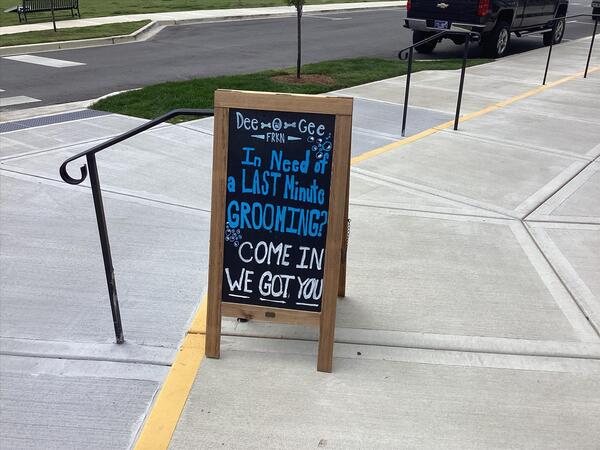 Dee Gee
FRKN
In Need of
a LAST Minute
GROOMING?
COME IN
WE GOT YOU